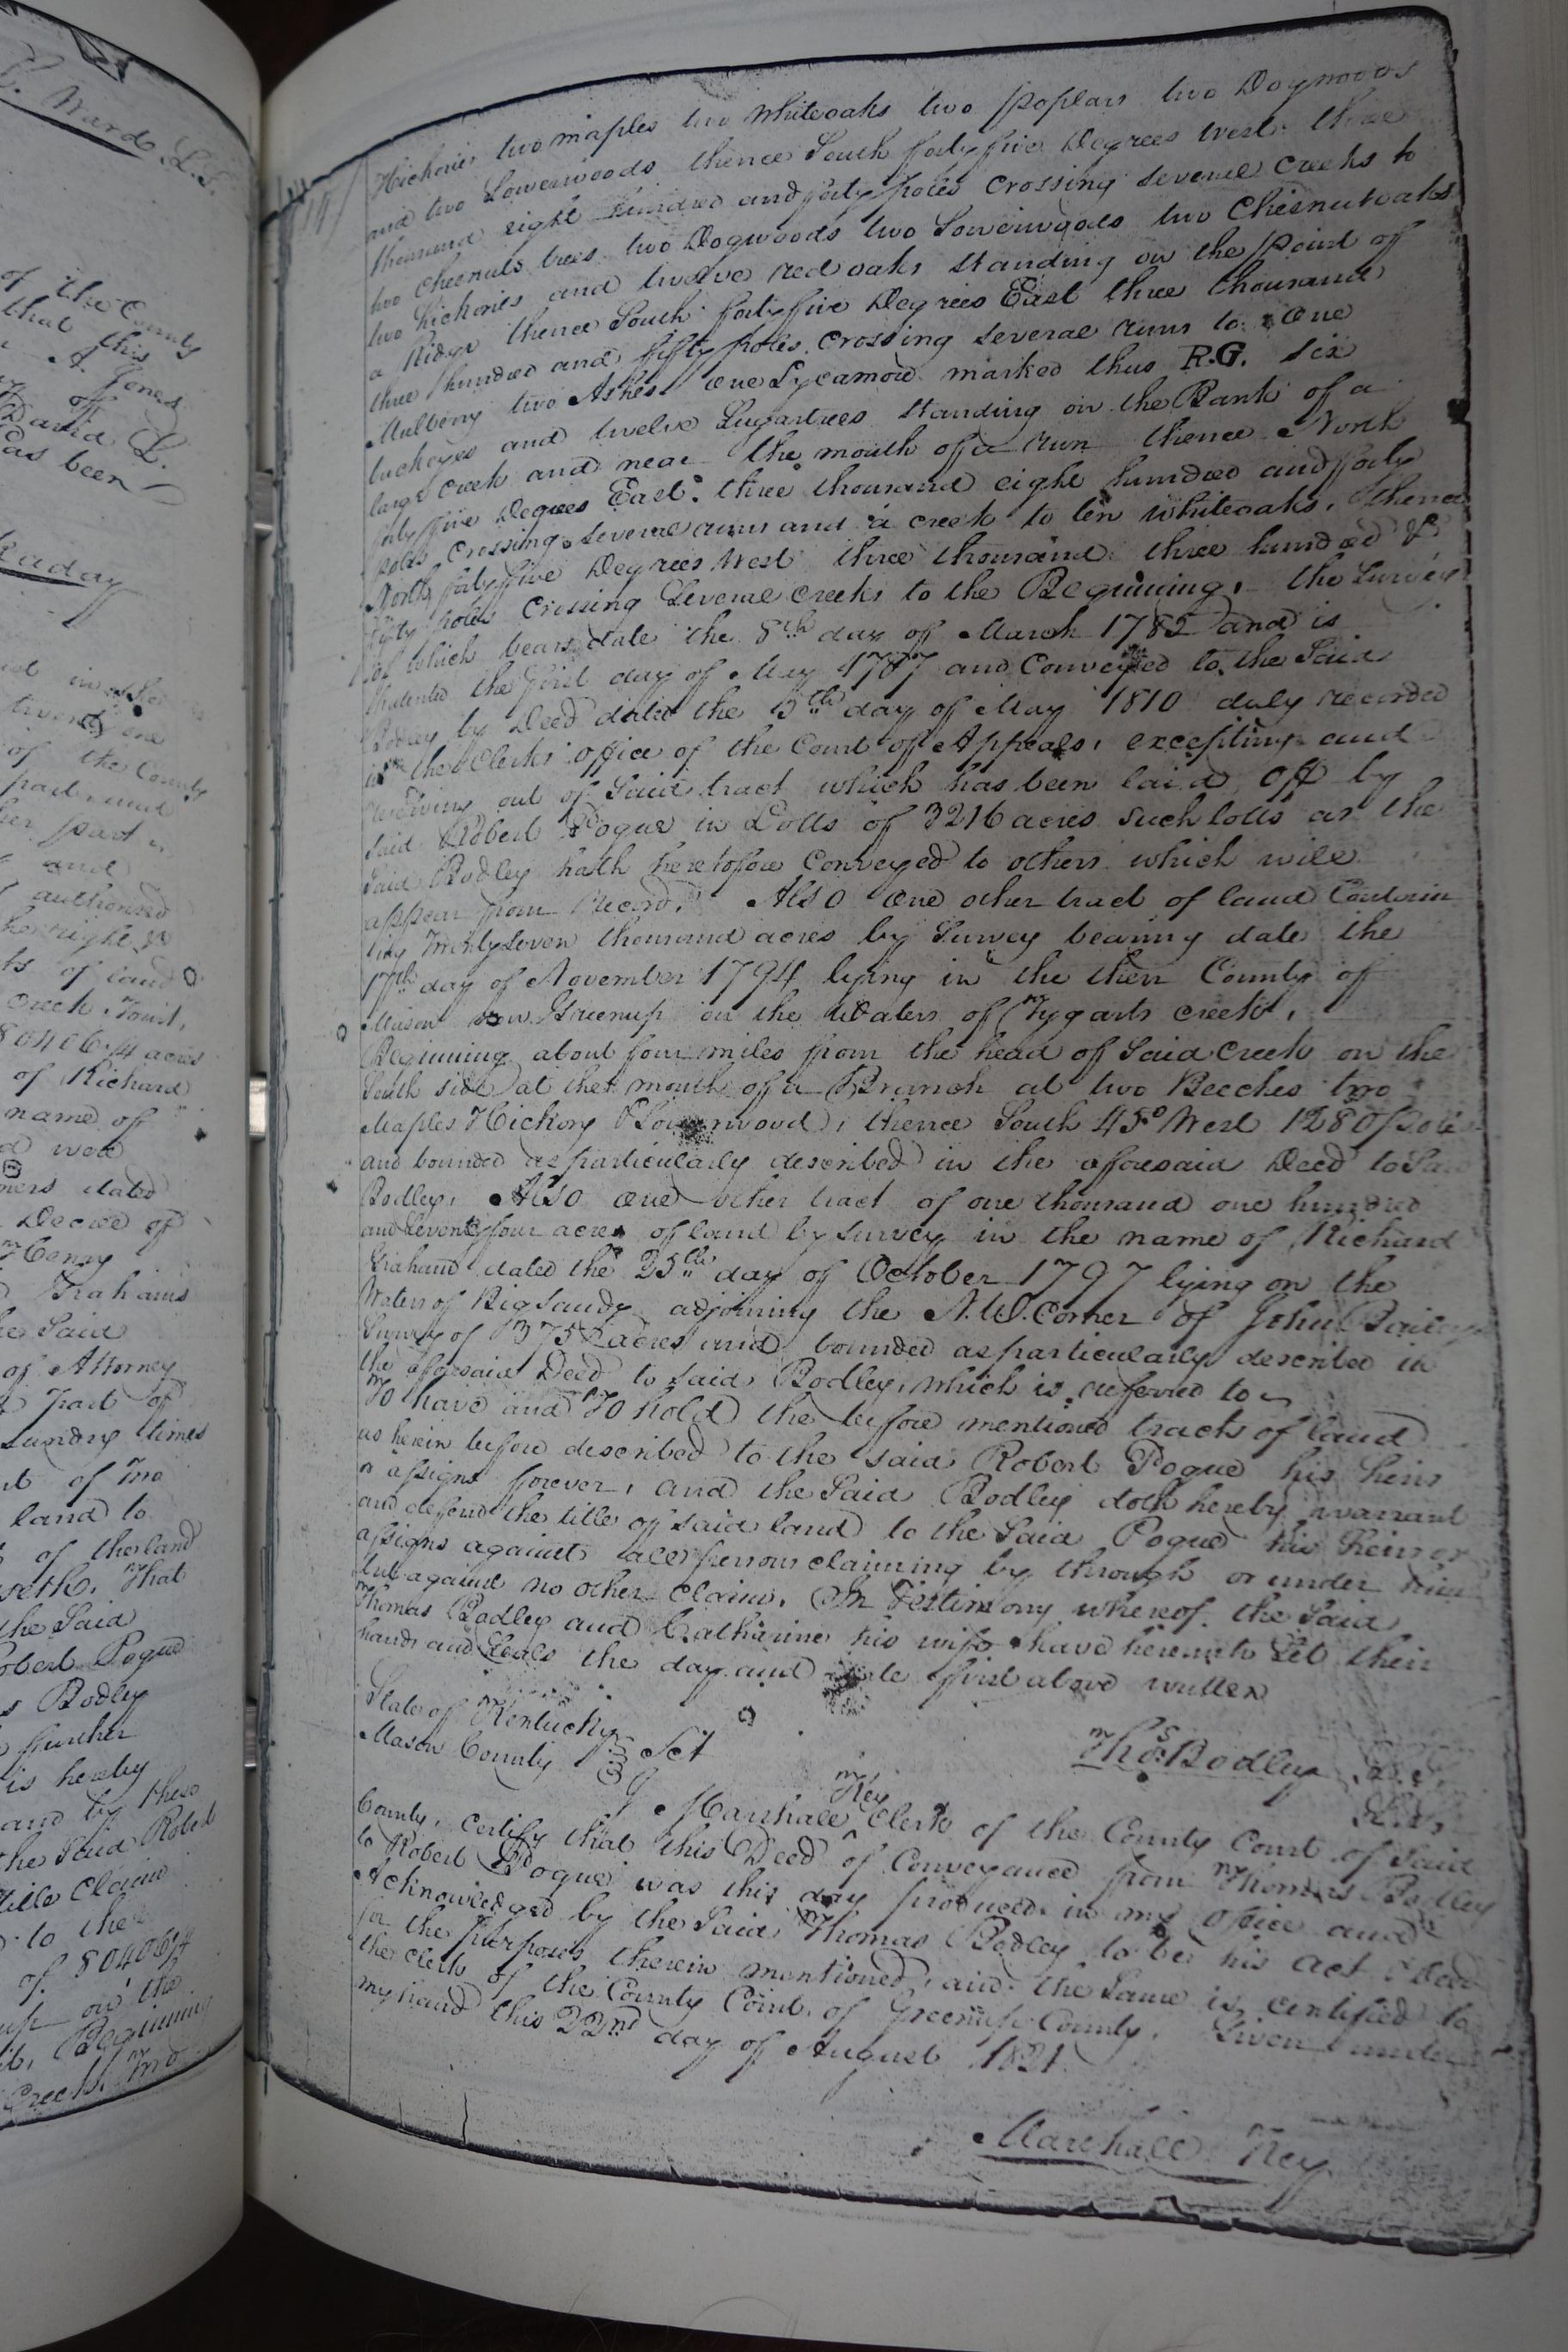 S. Ward L.S.
of the County
that this
A. Jones
off
David L.
as been
of the County
part and
her part
and
authorised
he right
ts of land
Creek Fount,
80406 1/4 acres
of Richard
name of
d were
ners dated
Decree of
Henry
Grahams
he Said
of Attorney
Part of
Sundry times
nt of Two
land to
of the land
seth, That
the Said
Robert Pogue
s Bodley
further
is hereby
and by these
the Said Robert
title Claim
to the
of 80406 1/4
up on the
it, Beginning
Creek, Two
Hickories two maples two Whiteoaks two poplars two Dogwoods
and two Sowerwoods thence South forty five Degrees west three
thousand eight hundred and forty poles Crossing several creeks to
two Chesnuts trees two Dogwoods two Sowerwoods two Chesnutoaks
two hickories and twelve red oaks standing on the point off
a Ridge thence South forty five Degrees East three thousand
three hundred and fifty poles Crossing several runs to one
Mulberry two Ashes one Sycamore marked thus R.G. six
buckeyes and twelve Sugartrees standing on the Bank of a
large creek and near the mouth of a run thence North
forty five Degrees East three thousand eight hundred and forty
poles Crossing several runs and a creek to ten Whiteoaks, thence
North forty five Degrees West three thousand three hundred &
fifty poles Crossing Several creeks to the Beginning, the Survey
of which bears date the 8th day of March 1785 and is
Patented the first day of May 1787 and Conveyed to the Said
Bodley by Deed dated the 15th day of May 1810 duly recorded
in the Clerks office of the Court of Appeals, excepting and
reserving out of Said tract which has been laid off by
said Robert Pogue in Lotts of 3216 acres such lotts as the
Said Bodley hath heretofore Conveyed to others which will
appear from record, Also one other tract of land Contain
ing Twenty Seven thousand acres by Survey bearing date the
17th day of November 1794 lying in the then County of
Mason now Greenup on the Waters of Tygarts creek,
Beginning about four miles from the head of Said Creek on the
South side at the mouth of a Branch at two Beeches two
Maples Hickory & Sowerwood, thence South 45° West 1280 pole
and bounded as particularly described in the aforesaid Deed to Said
Bodley, Also one other tract of one thousand one hundred
and Seventy four acres of land by survey in the name of Richard
Graham dated the 25th day of October 1797 lying on the
Waters of Big Sandy adjoining the N.W. Corner of John Baileys
Survey of 1375 acres and bounded as particularly described in
the aforesaid Deed to said Bodley, which is referred to
To have and To hold the before mentioned tracts of land
as herein before described to the said Robert Pogue his heirs
or assigns forever, and the Said Bodley doth hereby warrant
and defend the title of said land to the Said Pogue his heirs or
assigns against all persons claiming by through or under him
but against no other claim. In Testimony whereof the Said
Thomas Bodley and Catharine his wife have hereunto Set their
hands and Seals the day and date first above written
Thos. Bodley L.S.
L.S.
State of Kentucky
Mason County Sct
I Marshall Key Clerk of the County Court of Said
County, certify that this Deed of Conveyance from Thomas Bodley
to Robert Pogue was this day produced in my office and
Acknowledged by the Said Thomas Bodley to be his act & Deed
for the purposes therein mentioned, and the Same is certified to
the Clerk of the County Court of Greenup County. Given under
my hand this 22nd day of August 1821
Marshall Key